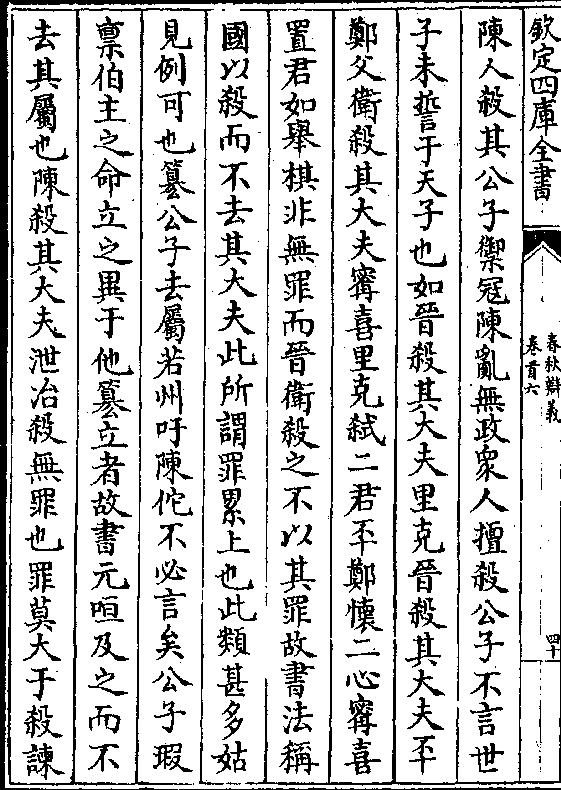 欽定四庫全書
春秋辯義
卷首六
四十
陳人殺其公子禦冦陳亂無政衆人擅殺公子不言世
子未誓于天子也如晉殺其大夫里克晉殺其大夫㔻
鄭父衛殺其大夫甯喜里克弑二君㔻鄭懷二心甯喜
置君如舉棋非無罪而晉衛殺之不以其罪故書法稱
國以殺而不去其大夫此所謂罪累上也此類甚多姑
見例可也簒公子去屬若州吁陳佗不必言矣公子瑕
禀伯主之命立之異于他簒立者故書元咺及之而不
去其屬也陳殺其大夫泄冶殺無罪也罪莫大于殺諫